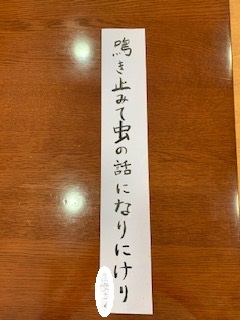 鳴き止みて虫の話になりにけり